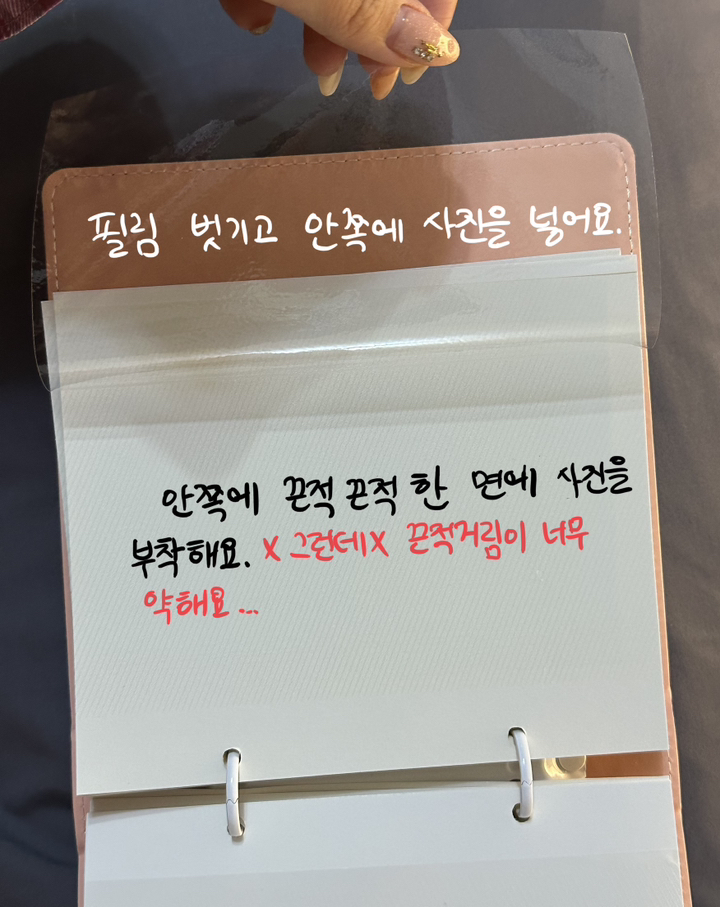 필림 벗기고 안쪽에 사진을 넣어요.
안쪽에 끈적끈적한 면에 사진을
부착해요. x 그런데x 끈적거림이 너무
약해요...